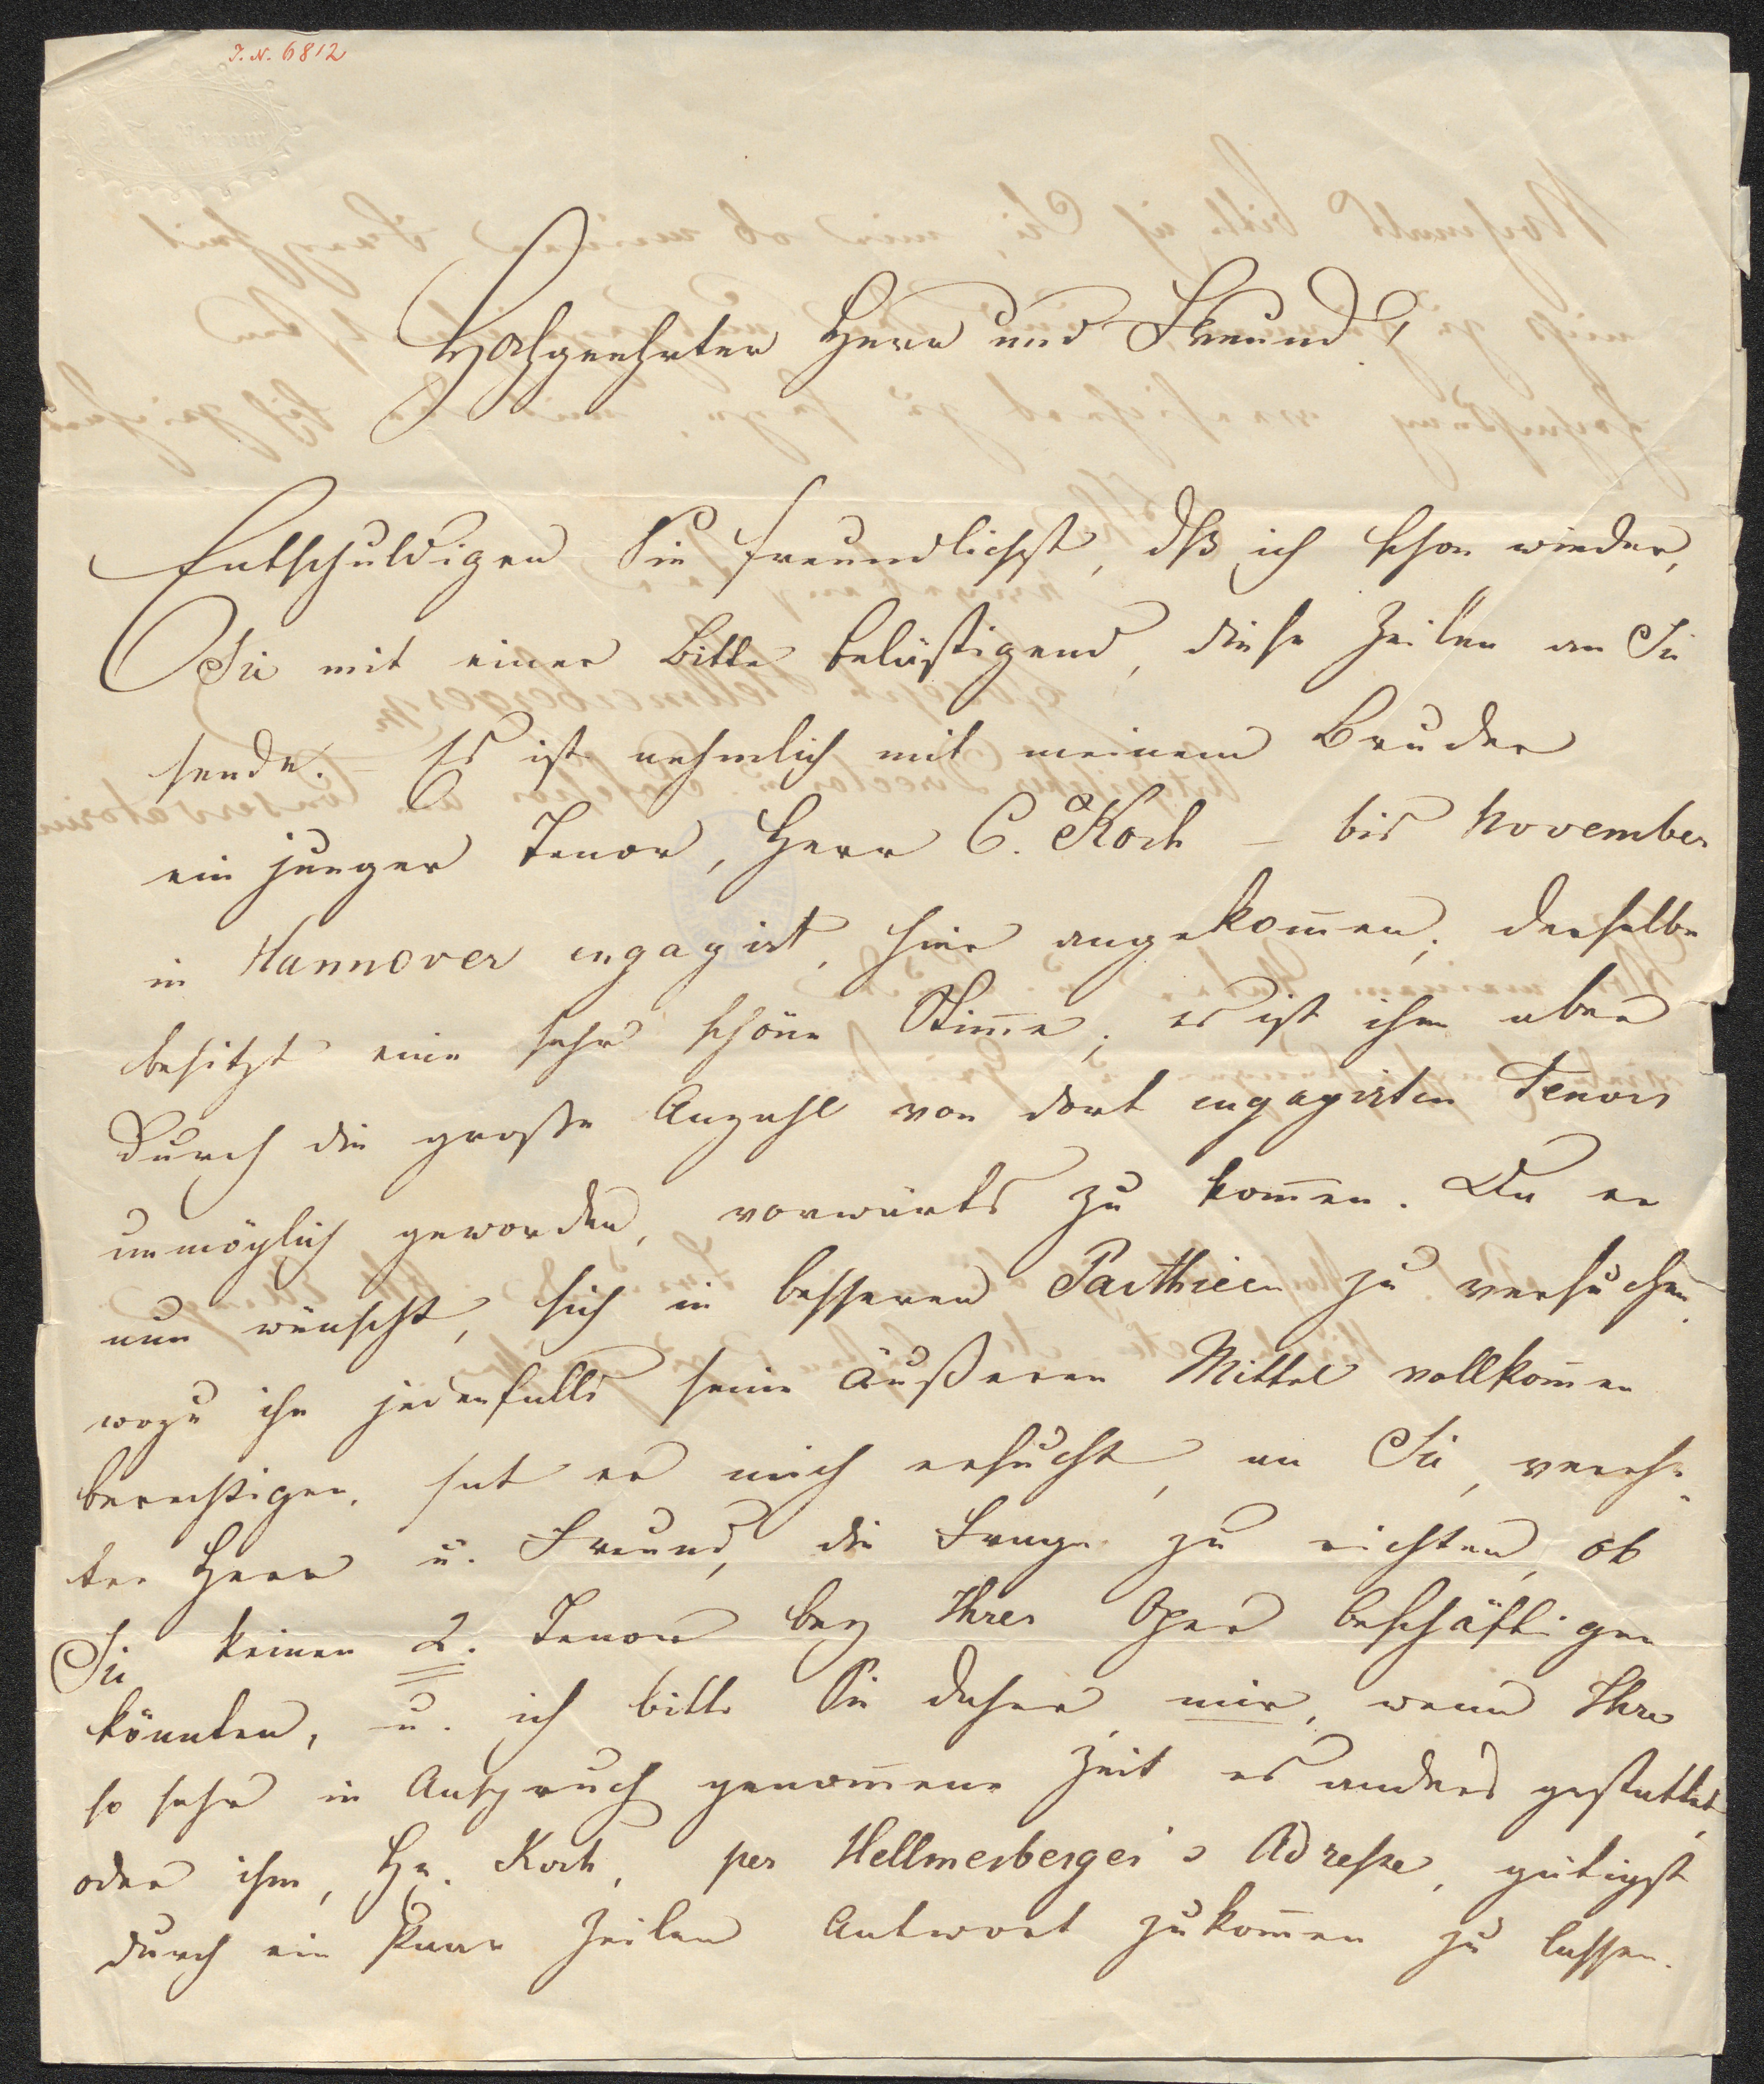 I. N. 6812
Hochgeehrter Herr und Freund!
Entschuldigen Sie freundlichst, dß ich schon wieder,
Sie mit einer Bitte belästigend, diese Zeilen an Sie
sende. – Es ist nehmlich mit meinem Bruder
ein junger Tenor, Herr C. Koch – bis November
in Hannover engagirt, hier angekom̄en; derselbe
besitzt eine sehr schöne Stim̄e; es ist ihm aber
durch die große Anzahl von dort engagirten Tenors
unmöglich geworden, vorwärts zu kom̄en. Da er
nun wünscht, sich in besseren Parthieen zu versuchen,
wozu ihn jedenfalls seine äußeren Mittel vollkom̄en
berechtigen, hat er mich ersucht, an Sie, verehr-
ter Herr u. Freund, die Frage zu richten, ob
Sie keinen 2. Tenor bey Ihrer Oper beschäftigen
könnten, u. ich bitte Sie daher, mir, wenn Ihre
so sehr in Anspruch genom̄ene Zeit es anders gestattet,
oder ihm, Hr. Koch, per Hellmesberger's Adresse, gütigst
durch ein Paar Zeilen Antwort zukom̄en zu lassen.